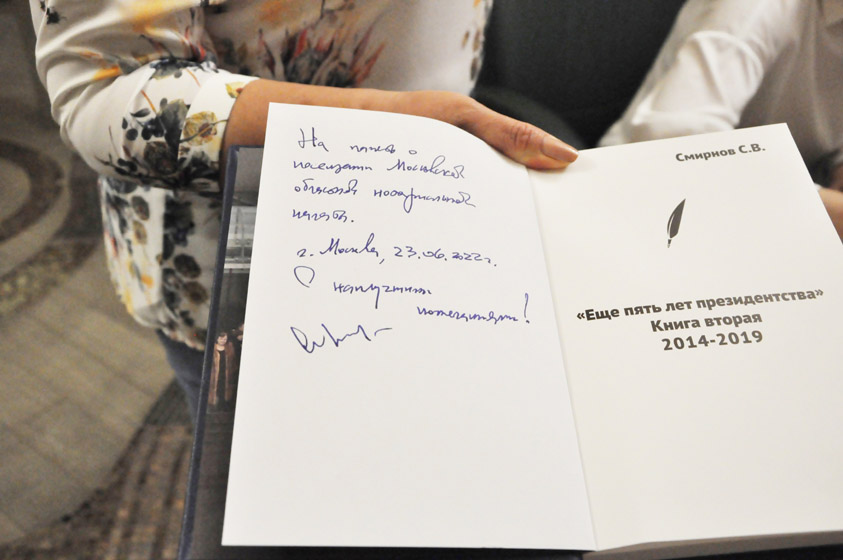 На память о
посещении Московской
областной нотариальной
палаты.
г. Москва, 23.06.2022г.
С наилучшими
пожеланиями!
Смирнов С.В.
«Еще пять лет президентства»
Книга вторая
2014-2019